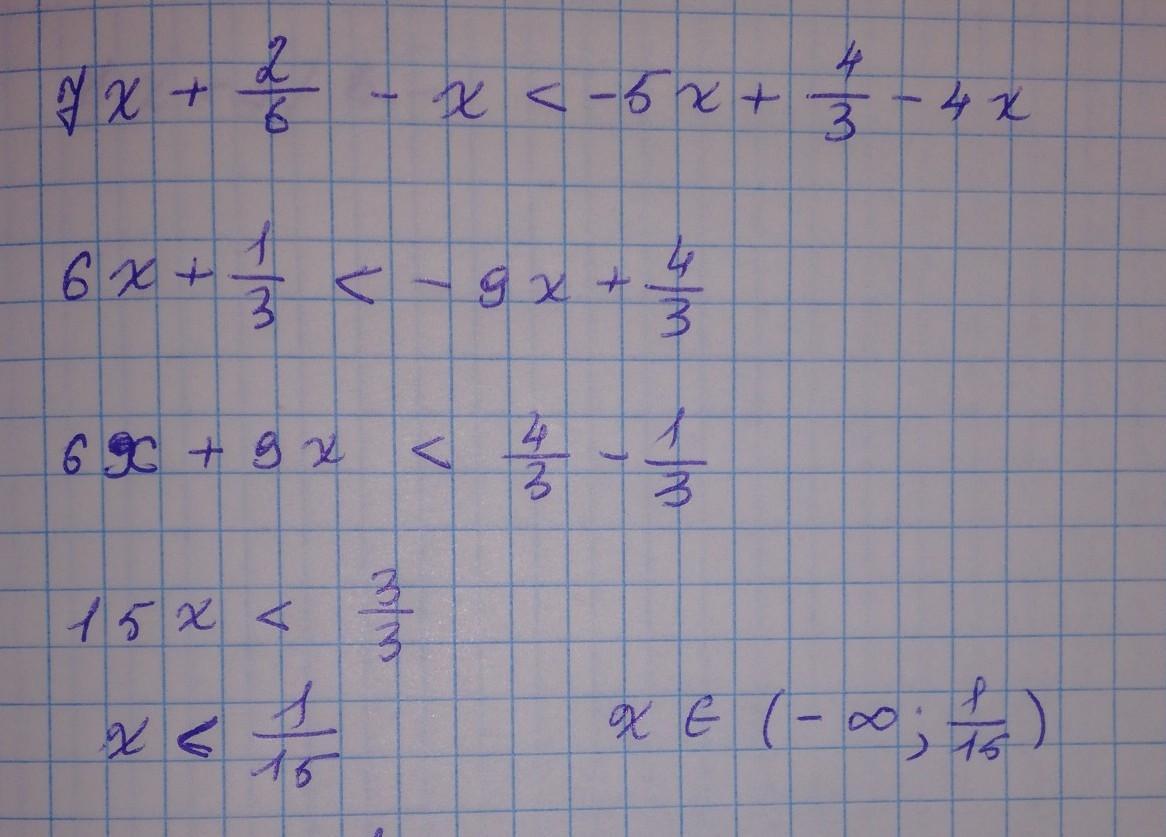 7x + 2/6 - x < -5x + 4/3 - 4x
6x + 1/3 < - 9x + 4/3
6x + 9x < 4/3 - 1/3
15x < 3/3
x < 1/15 x ∈ (- ∞; 1/15)